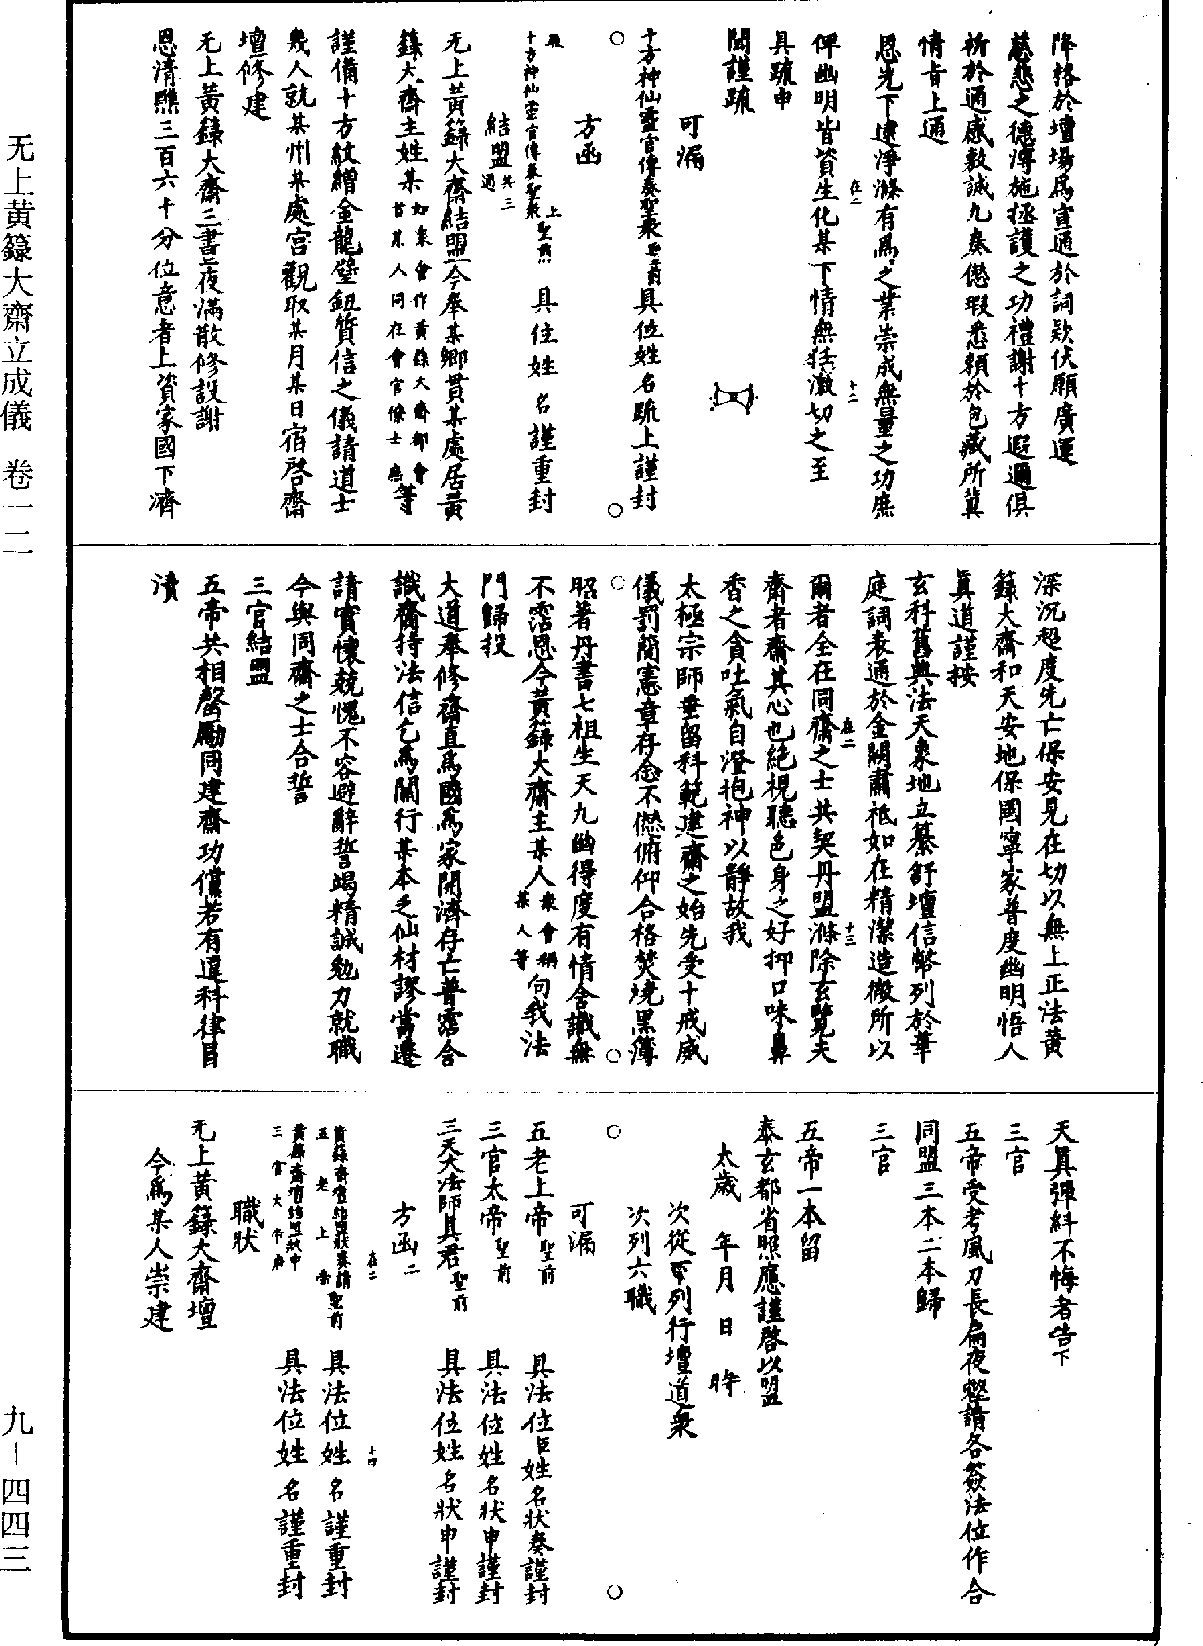 降格於壇場爲宣通於詞欵伏願廣運
慈悲之德溥施拯護之功禮謝十方遐邇俱
祈於通感敷誠九奏愆瑕悉頼於包藏所冀
情旨上通
恩光下逮淨滌有爲之業崇成無量之功庶
在二
十二
俾幽明皆資生化某下情無狂激切之至
具疏申
聞謹疏
可漏
十方神仙靈官傳奏聖衆聖前具位姓名䟽上謹封
方函
十方神仙靈官傳奏聖衆上聖前具位姓名謹重封
結盟共三通
无上黃籙大齋結盟今奉某鄉貫某處居黃
籙大齋主姓某如衆會作黃籙大齋都會首某人同在會官僚士庶等
謹備十方紋繒金龍璧鈕質信之儀請道士
幾人就某州某處宮觀取某月某日宿啓齋
壇修建
无上黃籙大齋三晝夜滿散修設謝
恩清醮三百六十分位意者上資家國下濟
深沉超度先亡保安見在切以無上正法黃
籙大齋和天安地保國寧家普度幽明悟人
眞道謹按
玄科舊典法天象地立纂舒壇信幣列於華
庭詞表通於金闕肅祗如在精潔造微所以
爾者全在同齋之士共契丹盟滌除玄覽夫
在二
十三
齋者齋其心也絕視聽色身之好抑口味鼻
香之貪吐氣自澄抱神以靜故我
太極宗師垂留科範建齋之始先受十戒威
儀罰簡憲章存念不愆俯仰合格焚燒黑簿
昭著丹書七祖生天九幽得度有情含識無
不霑恩今黃籙大齋主某人衆會稱某人等句我法
門歸投
大道奉修齋直爲國爲家開濟存亡普霑含
識齋持法信乞爲關行某本乏仙材謬當遷
請實懷兢愧不容避辭誓竭精誠勉力就職
今與同齋之士合誓
三官結盟
五帝共相磬勵同建齋功儻若有違科律冒
瀆
天眞彈糾不悔者告下
三官
五帝受考風刀長扃夜壑請各簽法位作合
同盟三本二本歸
三官
五帝一本留
泰玄都省照應謹啓以盟
太歲 年月 日 時
次從卑列行壇道衆
次列六職
可漏
五老上帝聖前 具法位臣姓名狀奏謹封
三官大帝聖前 具法位姓名狀申謹封
三天大法師眞君聖前 具法位姓名狀申謹封
方函二
在二
十四
黃籙齋壇結盟狀奏請五老上帝聖前 具法位姓名謹重封
黃籙齋壇結盟狀申三官大帝府 具法位姓名謹重封
職狀
无上黃籙大齋壇
今爲某人崇建
无上黃籙大齋立成儀 卷一二
九—四四三